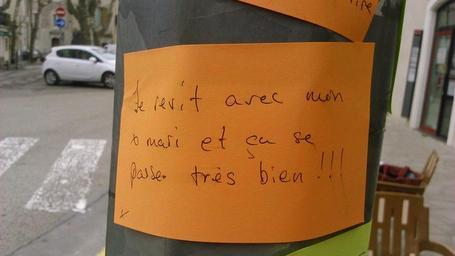 ire
Je revit avec mon
mari et ça se
passe très bien !!!